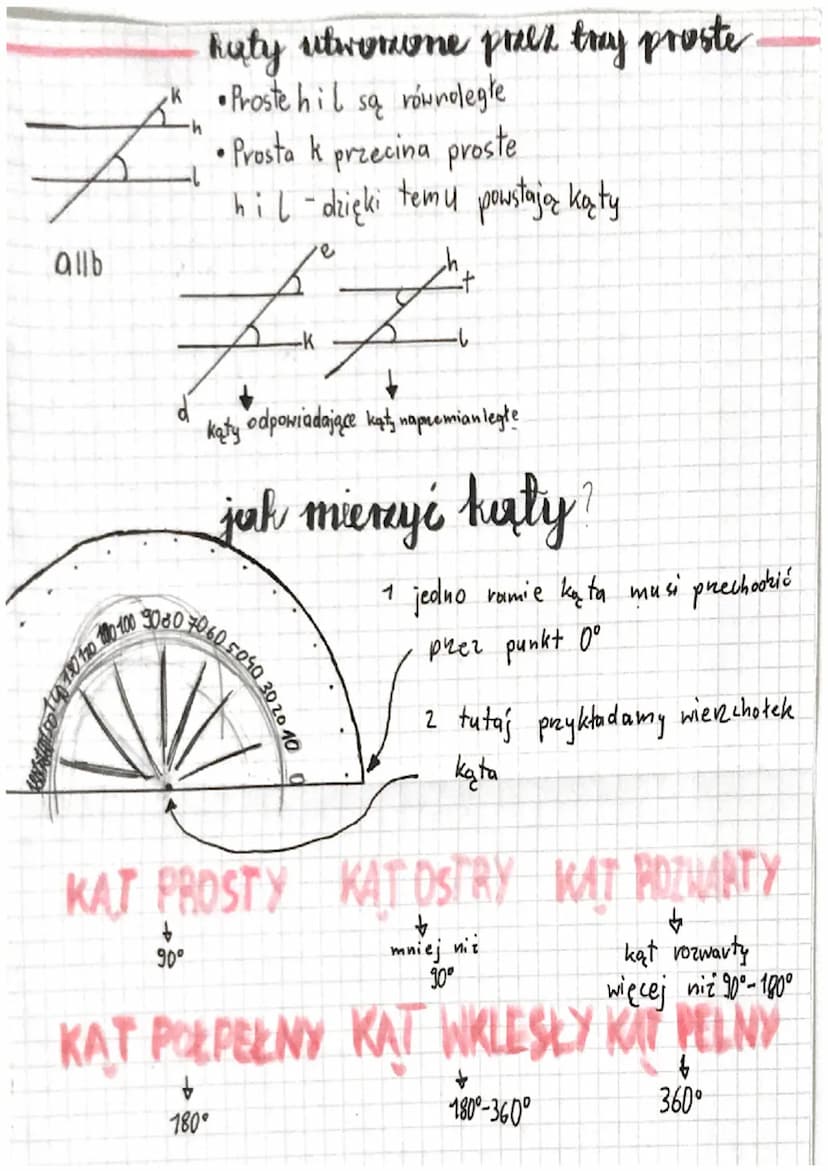 kąty utworzone przez trzy proste
k
• Proste h i l są równoległe
h
• Prosta k przecina proste
l
h i l - dzięki temu powstają kąty
a||b
e
h
t
k
l
d
kąty odpowiadające
kąty naprzemianległe
jak mierzyć kąty?
1 jedno ramie kąta musi przechodzić
przez punkt 0°
2 tutaj przykładamy wierzchołek
kąta
120 110 100 90 80 70 60 50 40 30 20 10 0
KĄT PROSTY KĄT OSTRY KĄT ROZWARTY
90°
mniej niż
90°
kąt rozwarty
więcej niż 90°-180°
KĄT PÓŁPEŁNY KĄT WKLĘSŁY KĄT PEŁNY
180°
180°-360°
360°